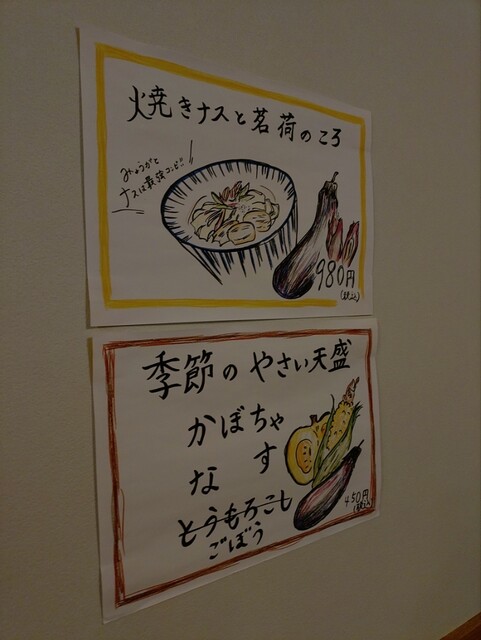 焼きナスと茗荷のころ
みょうがと
ナスは最強コンビ!!
980円
(税込)
季節のやさい天盛
かぼちゃ
なす
とうもろこし
ごぼう
450円
(税込)